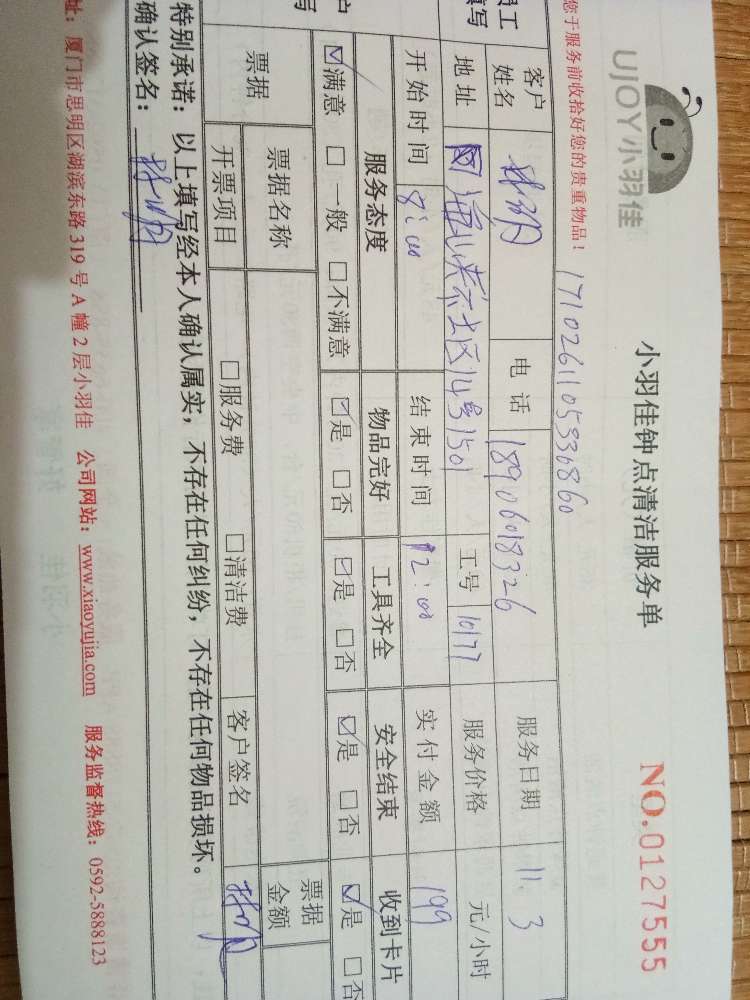 UJOY小羽佳
小羽佳钟点清洁服务单
NO.0127555
您于服务前收拾好您的贵重物品！
1710261105336860
员工
填写
客户姓名
电话 18906018326
服务日期 11.3
地址
社区14号1501
工号 10177
服务价格 元/小时
开始时间 8:00
结束时间 12:00
实付金额 199
户
写
服务态度 物品完好 工具齐全 安全结束 收到卡片
☑满意 □一般 □不满意 ☑是 □否 ☑是 □否 ☑是 □否 ☑是 □否
票据
票据名称
票据金额
开票项目 □服务费 □清洁费 客户签名
特别承诺：以上填写经本人确认属实，不存在任何纠纷，不存在任何物品损坏。
确认签名：
址：厦门市思明区湖滨东路 319 号 A 幢 2 层小羽佳 公司网站：www.xiaoyujia.com 服务监督热线：0592-5888123